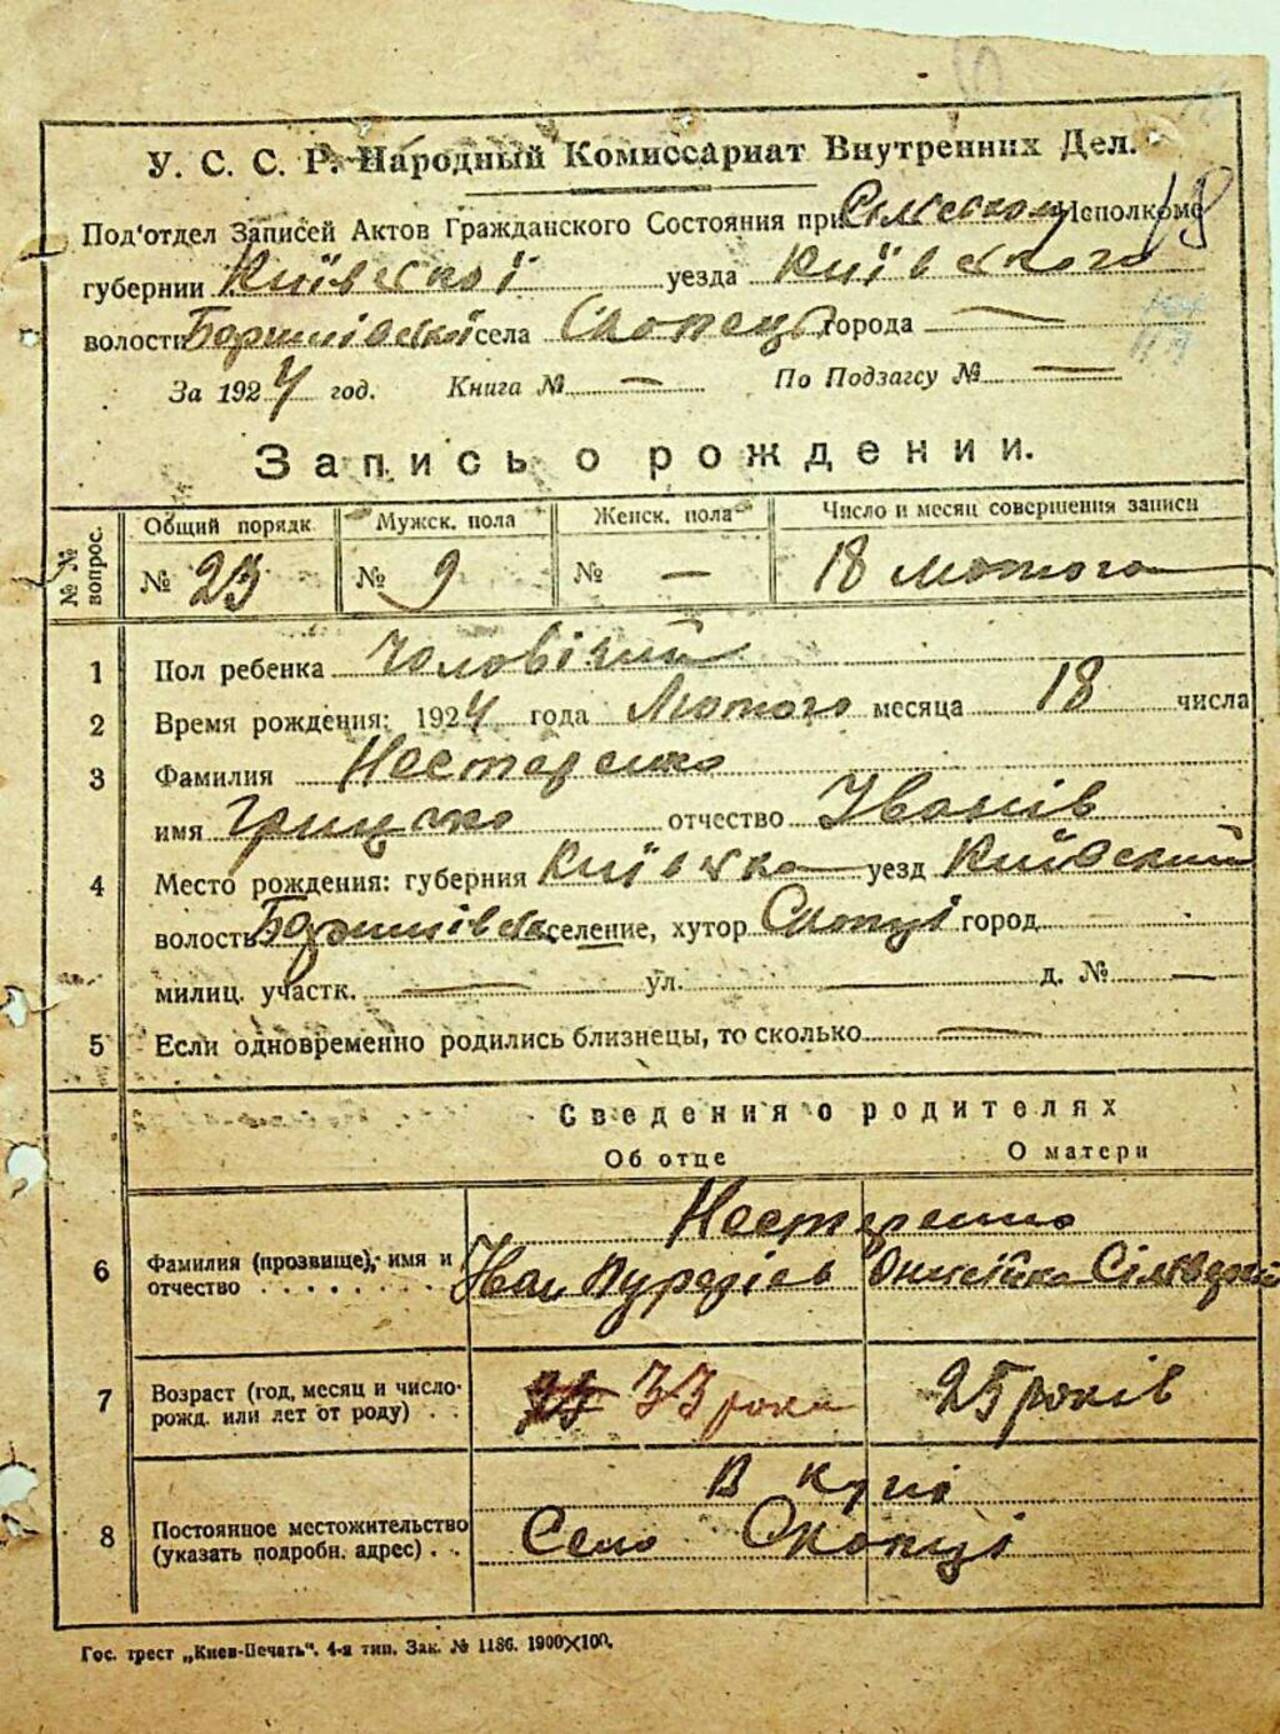 У. С. С. Р. Народный Комиссариат Внутренних Дел.
Под'отдел Записей Актов Гражданского Состояния при Исполкоме
губернии Київської уезда Київського
волости села Скопець города —
За 1924 год. Книга № — По Подзагсу № —
Запись о рождении.
№ № вопрос. Общий порядк Мужск. пола Женск. пола Число и месяц совершения записи
№ 23 № 9 № — 18 лютого
1 Пол ребенка Чоловічий
2 Время рождения: 1924 года Лютого месяца 18 числа
3 Фамилия Нестеренко
имя Грицько отчество Іванів
4 Место рождения: губерния Київська уезд Київский
волость селение, хутор Скопці город
милиц. участк. — ул. — д. № —
5 Если одновременно родились близнецы, то сколько —
Сведения о родителях
Об отце О матери
Нестеренко
6 Фамилия (прозвище), имя и
отчество Іван
7 Возраст (год, месяц и число
рожд. или лет от роду) . . 33 роки 25 років
В купі
8 Постоянное местожительство
(указать подробн. адрес) . . Село Скопці
Гос. трест „Киев-Печать“. 4-я тип. Зак. № 1186. 1900×100.